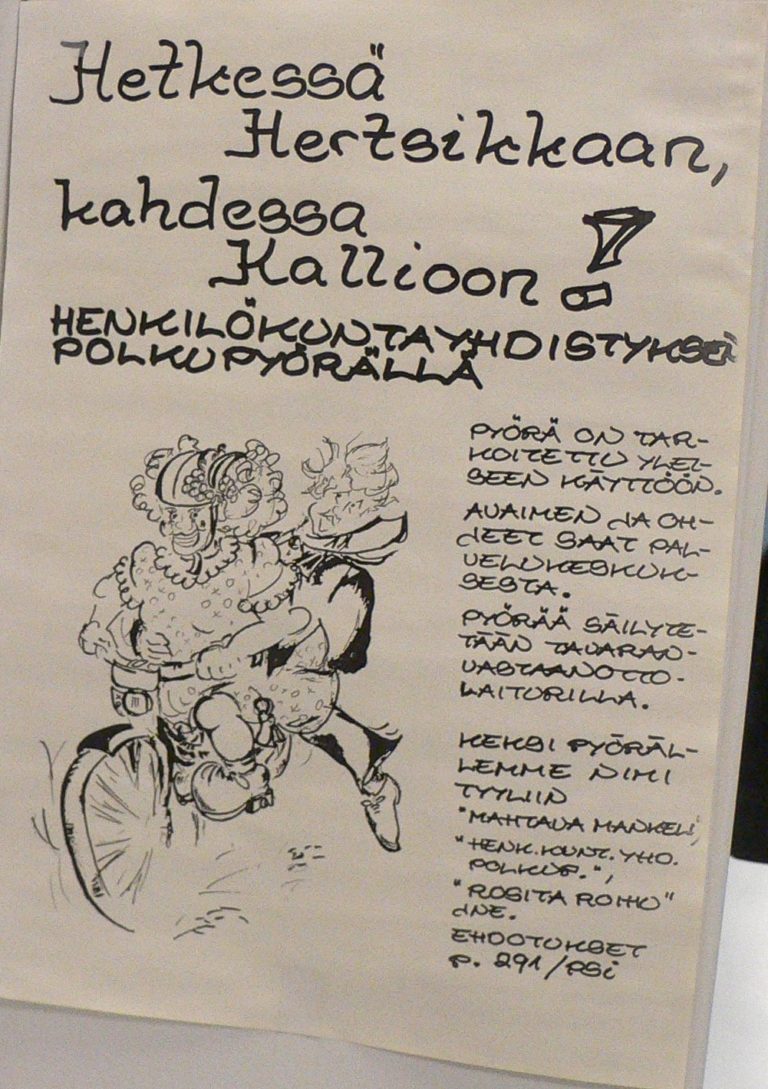 Hetkessä
Hertsikkaan,
kahdessa
Kallioon!
HENKILÖKUNTAYHDISTYKSEN
POLKUPYÖRÄLLÄ
PYÖRÄ ON TAR-
KOITETTU YLEI-
SEEN KÄYTTÖÖN.
AVAIMEN JA OH-
JEET SAAT PAL-
VELUKESKUK-
SESTA.
PYÖRÄÄ SÄILYTE-
TÄÄN TAVARAN-
VASTAANOTTO-
LAITURILLA.
KEKSI PYÖRÄL-
LEMME NIMI
TYYLIIN
"MAHTAVA MANKELI",
"HENK.KUNT.YHD.
POLKUP.",
"ROSITA ROIHU"
JNE.
EHDOTUKSET
P. 291/PSi